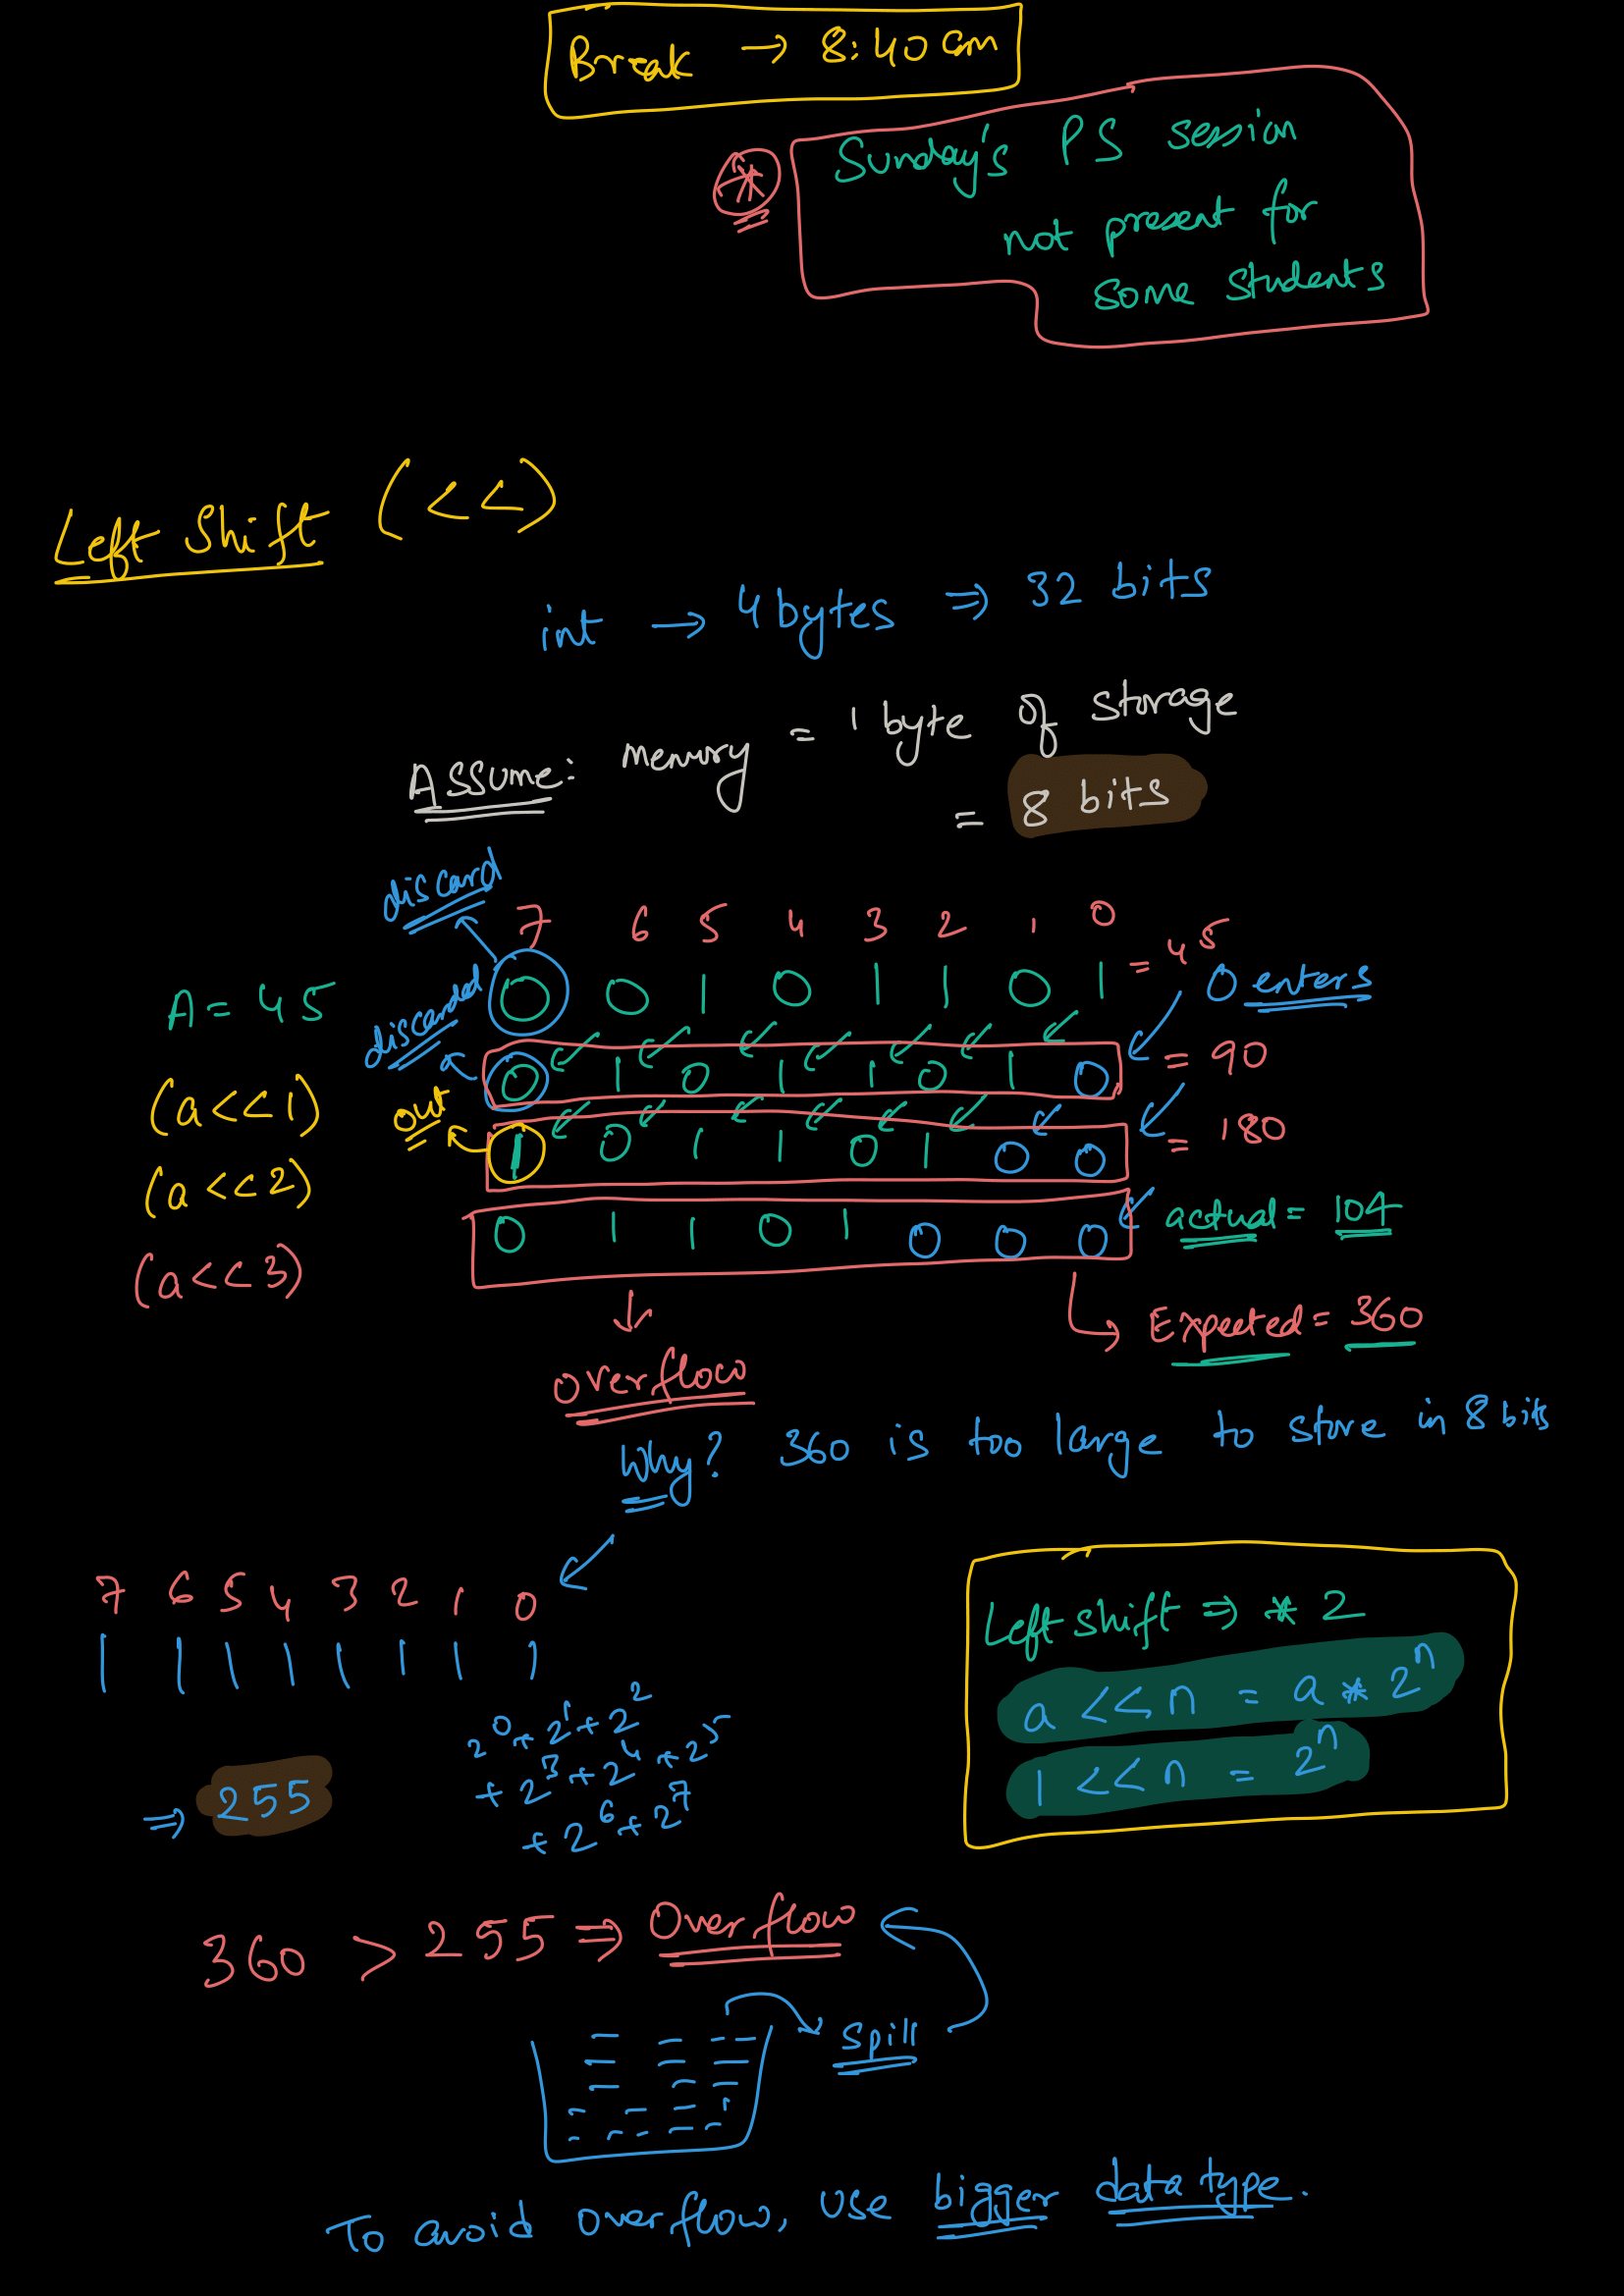 Break → 8:40 am
Sunday's PS session
not present for
some students
Left Shift (<<)
int → 4 bytes ⇒ 32 bits
Assume: memory = 1 byte of storage
= 8 bits
discard
7 6 5 4 3 2 1 0
A = 45 0 0 1 0 1 1 0 1 = 45
0 enters
discarded
(a<<1) 0 1 0 1 1 0 1 0 = 90
out
(a<<2) 1 0 1 1 0 1 0 0 = 180
(a<<3) 0 1 1 0 1 0 0 0 actual = 104
Expected = 360
overflow
Why? 360 is too large to store in 8 bits
7 6 5 4 3 2 1 0
1 1 1 1 1 1 1 1
2⁰ + 2¹ + 2²
+ 2³ + 2⁴ + 2⁵
+ 2⁶ + 2⁷
⇒ 255
Left shift ⇒ * 2
a << n = a * 2ⁿ
1 << n = 2ⁿ
360 > 255 ⇒ Overflow
spill
To avoid overflow, use bigger data type.